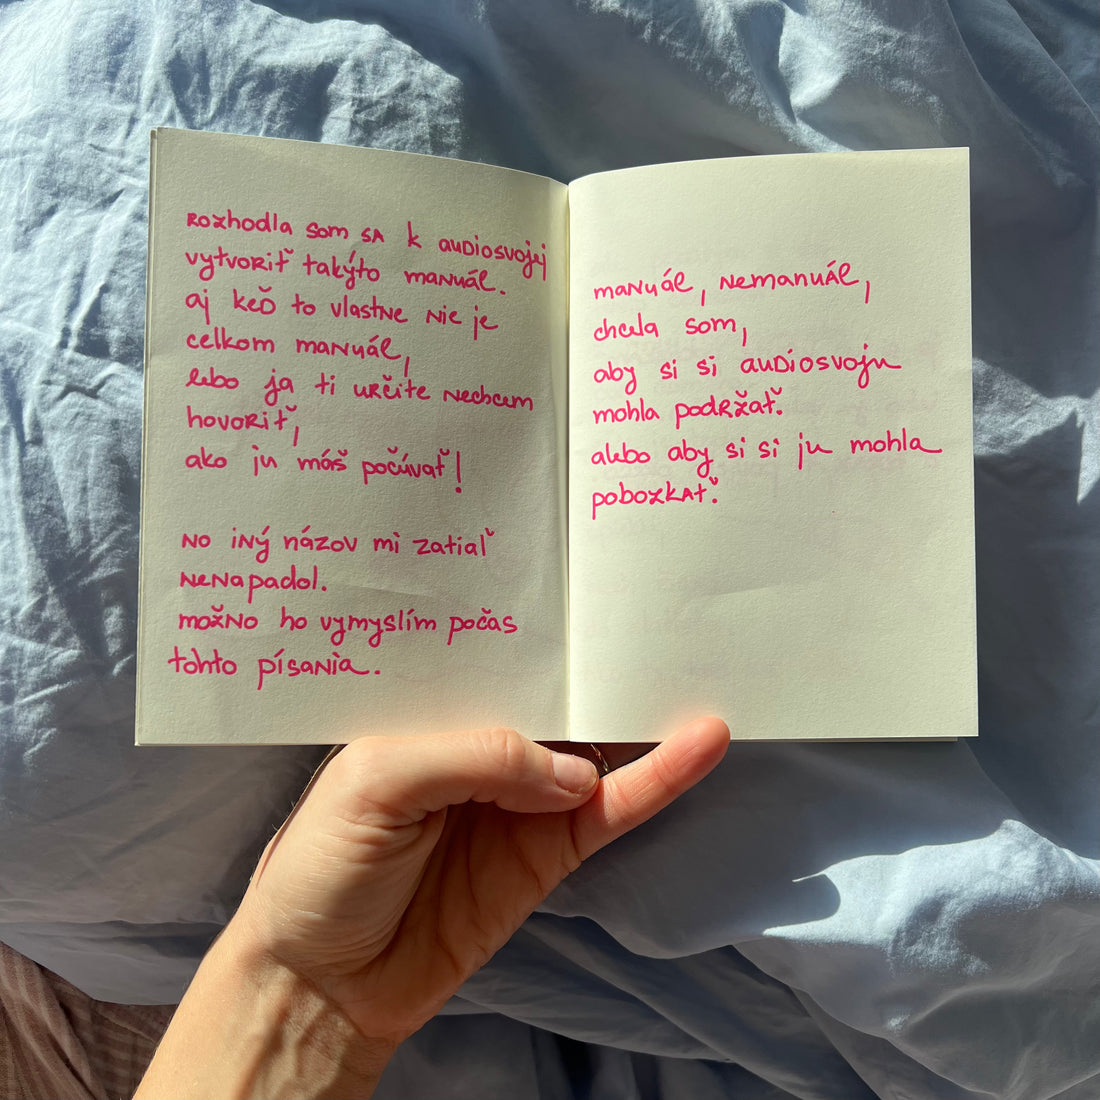 rozhodla som sa k audiosvojej
vytvoriť takýto manuál.
aj keď to vlastne nie je
celkom manuál,
lebo ja ti určite nechcem
hovoriť,
ako ju máš počúvať!
no iný názov mi zatiaľ
nenapadol.
možno ho vymyslím počas
tohto písania.
manuál, nemanuál,
chcela som,
aby si si audiosvoju
mohla podržať.
alebo aby si si ju mohla
pobozkať.